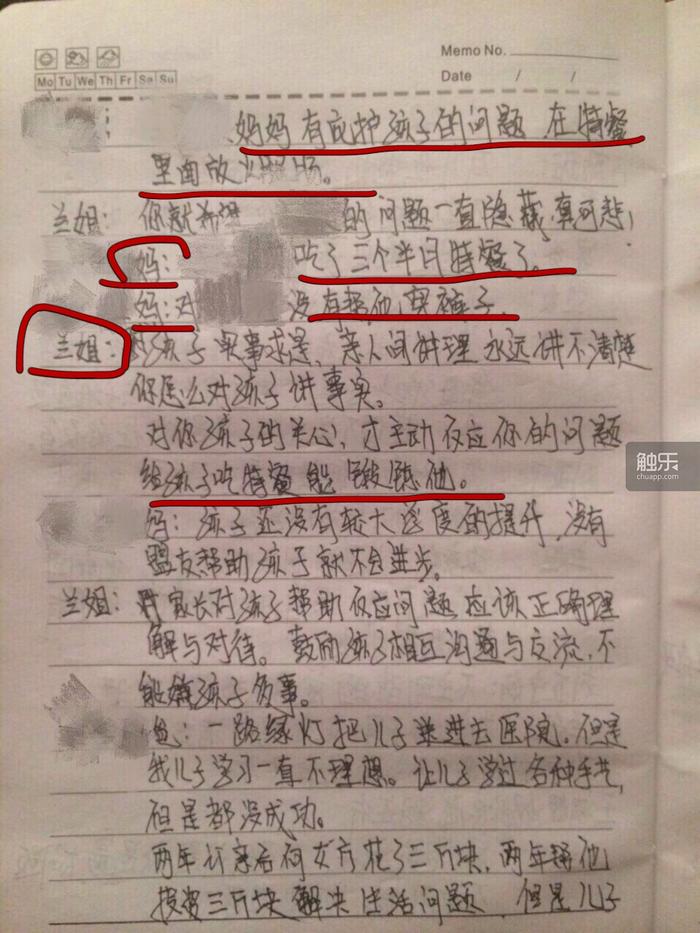 Memo No.
Mo Tu We Th Fr Sa Su
Date / /
妈妈有庇护孩子的问题 在特餐
里面放火腿肠。
兰姐: 你就 的问题一直隐藏,真可悲!
妈: 吃了三个半月特餐了。
妈: 对 没有帮他买裤子。
兰姐: 对孩子实事求是, 亲人间讲理永远讲不清楚
你怎么对孩子讲事实。
对你孩子的关心, 才主动反应你的问题
给孩子吃特餐能锻炼他。
妈: 孩子还没有较大深度的提升, 没有
盟友帮助孩子就不会进步。
兰姐: 家长对孩子帮助反应问题 应该正确理
解与对待。鼓励孩子相互沟通与交流, 不
能嫌孩子多事。
爸: 一路绿灯把儿子送进去医院, 但是
我儿子学习一直不理想。让儿子学过各种手艺,
但是都没成功。
两年 花了三万块, 两年
投资三万块解决生活问题, 但是儿子
触乐
chuapp.com